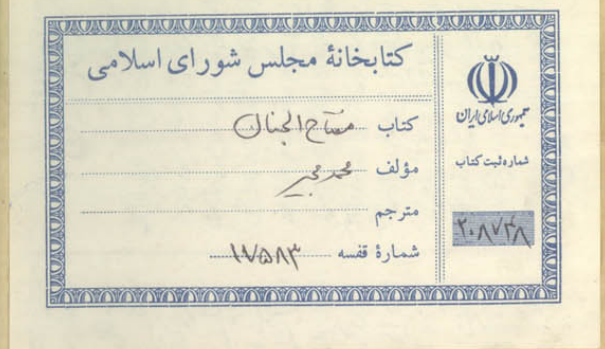 کتابخانهٔ مجلس شورای اسلامی
کتاب مفتاح الجنان
مؤلف محمد مجیر
مترجم
شمارهٔ قفسه ۱۷۵۸۳
جمهوری اسلامی ایران
شماره ثبت کتاب
۲۰۸۷۴۸